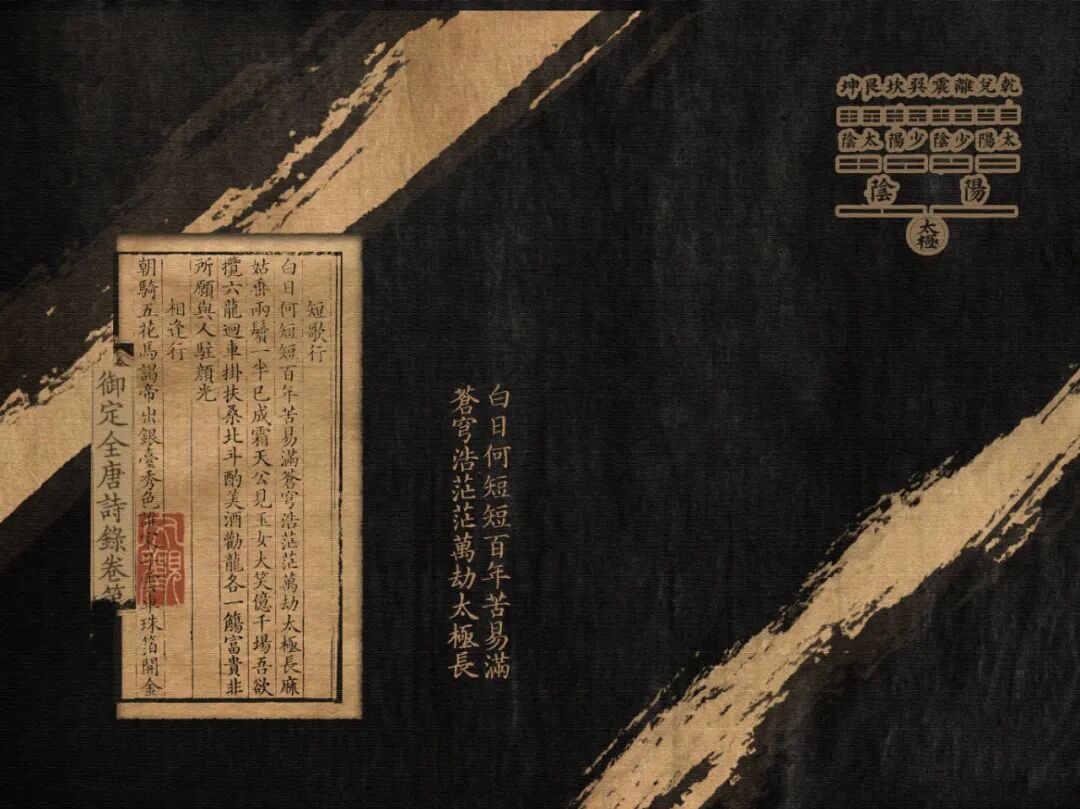 乾兌離震巽坎艮坤
太陽 少陰 少陽 太陰
陽 陰
太極
白日何短短百年苦易滿
蒼穹浩茫茫萬劫太極長
短歌行
白日何短短百年苦易滿蒼穹浩茫茫萬劫太極長麻
姑垂兩鬢一半已成霜天公見玉女大笑億千場吾欲
攬六龍迴車掛扶桑北斗酌美酒勸龍各一觴富貴非
所願與人駐顏光
相逢行
朝騎五花馬謁帝出銀臺秀色誰車珠箔開金
御定全唐詩錄卷第